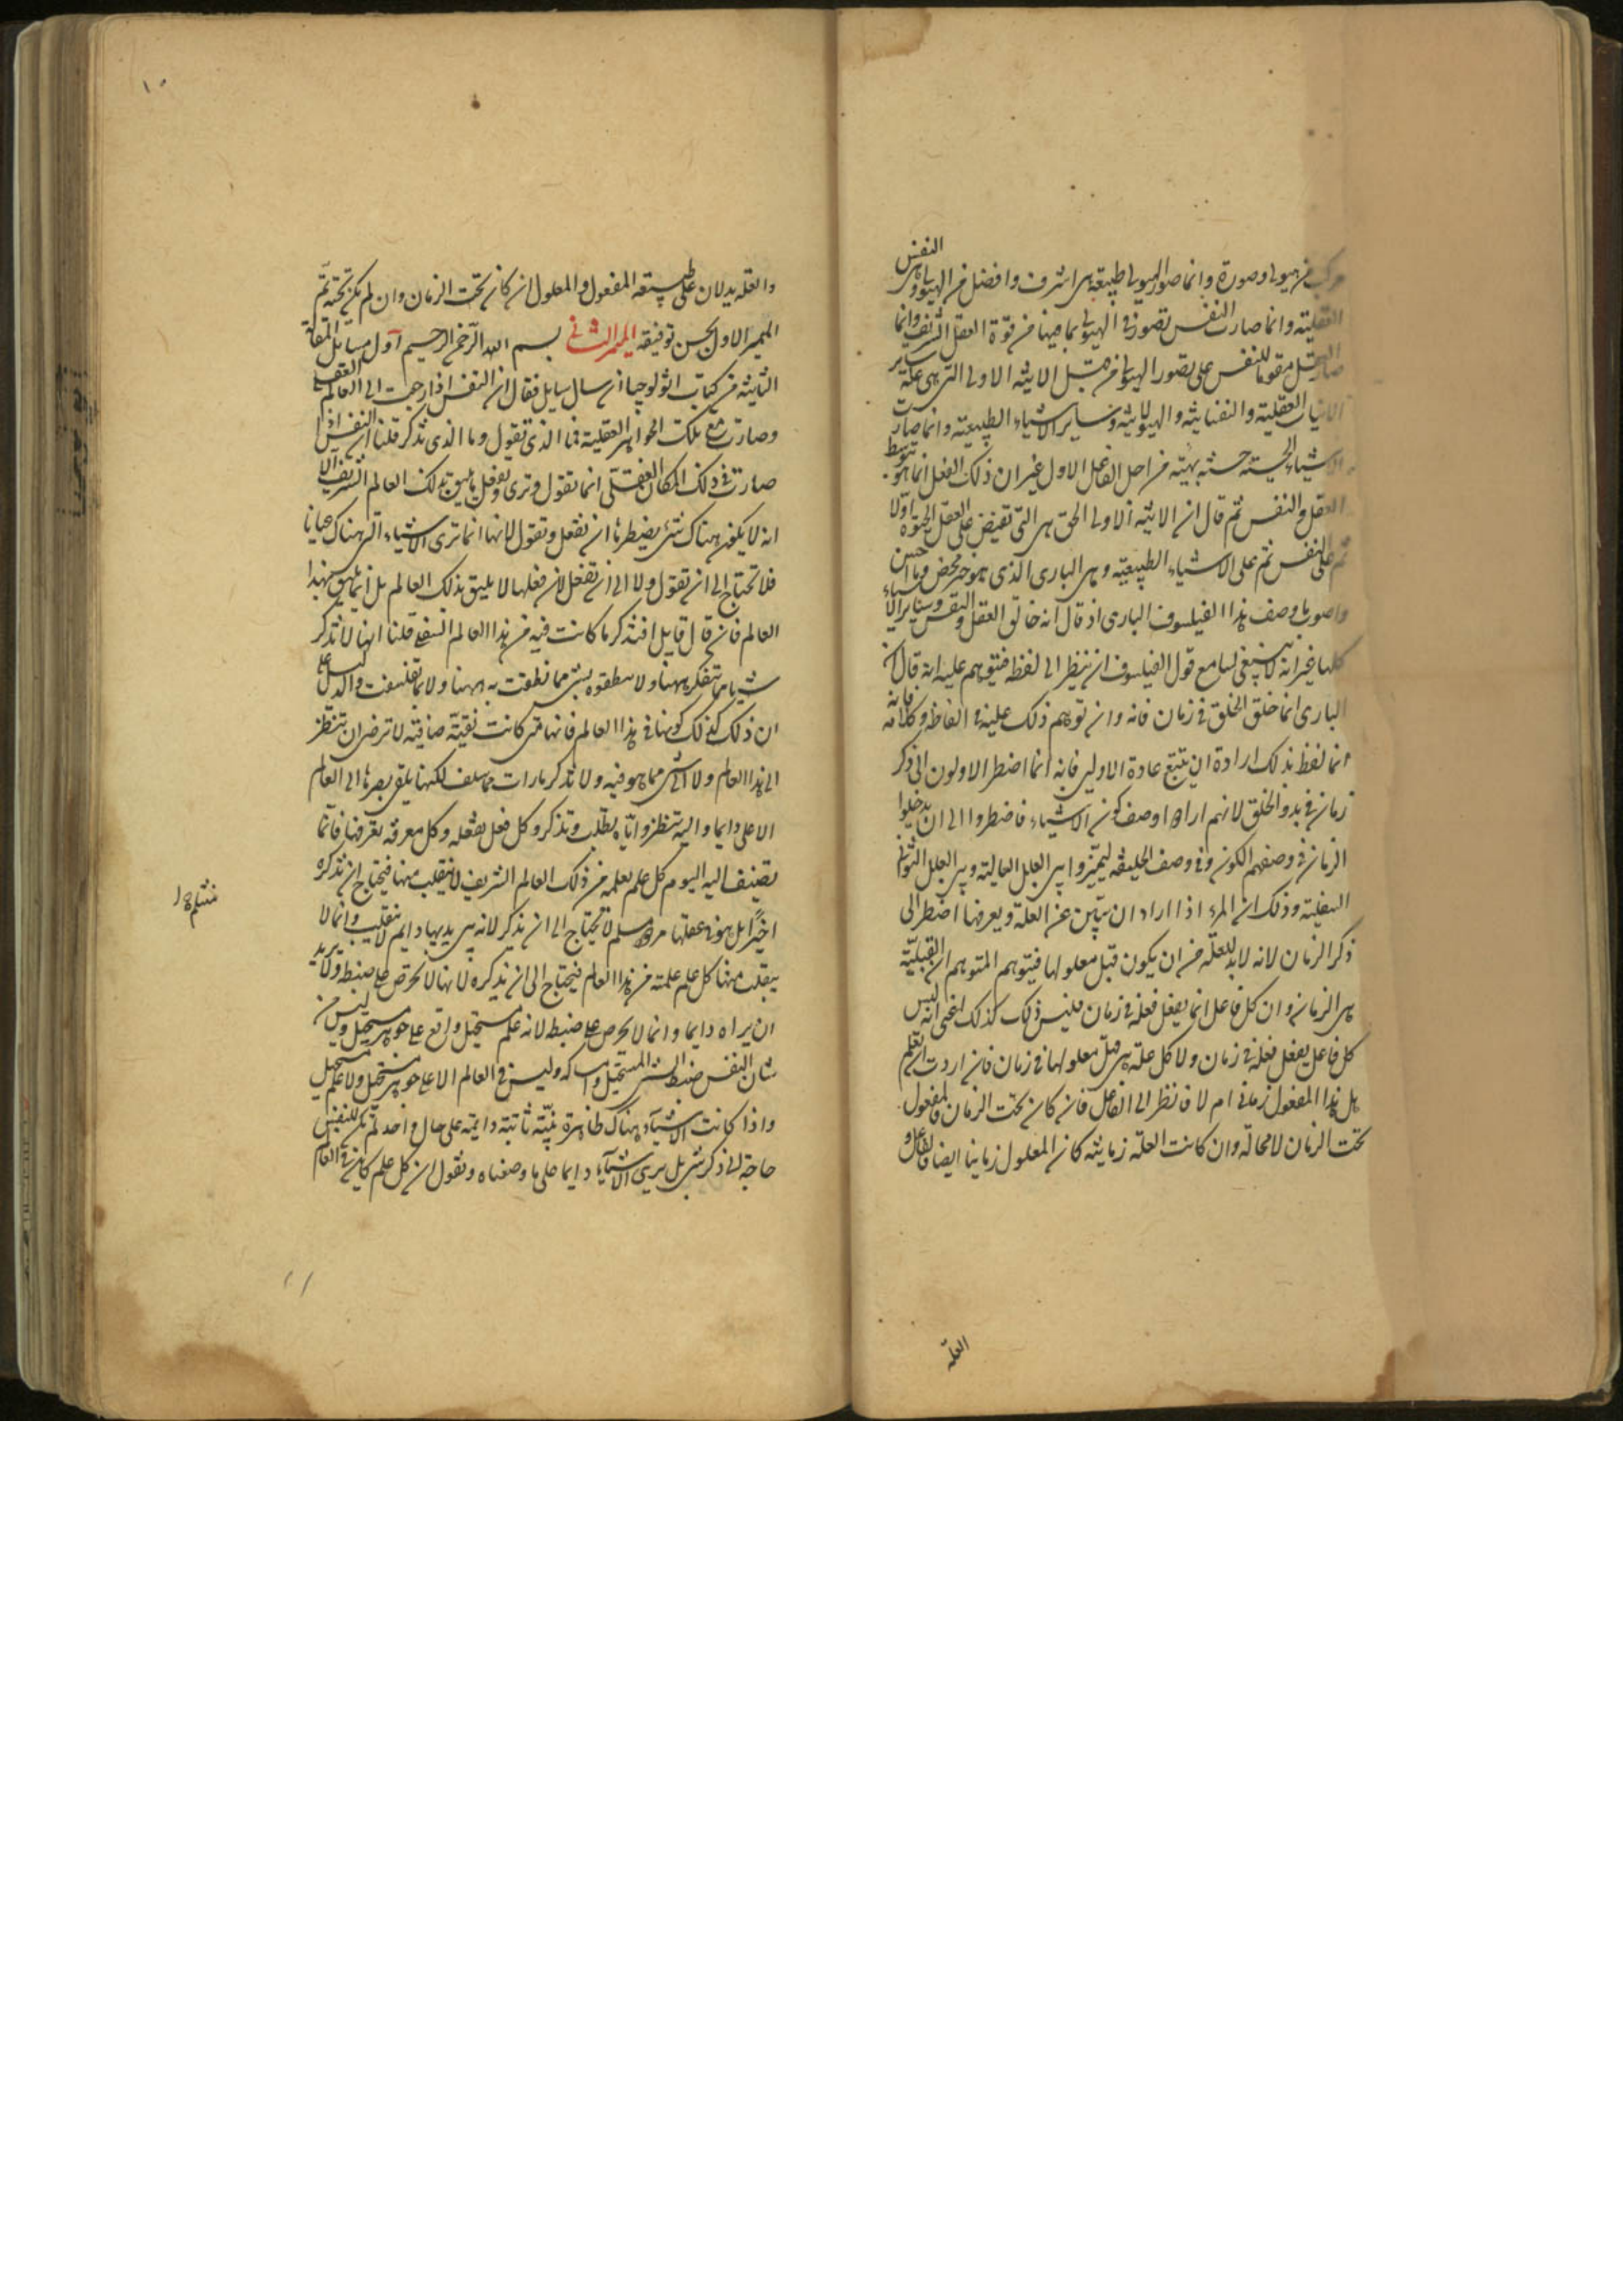 النفس
مركب من هيولى وصورة وانما صور الهيولى طبيعة هى اشرف وافضل من الهيولى وهى
العقلية وانما صارت النفس تصور فى الهيولى بما فيها من قوة العقل الشريف وانما
صار العقل مقويا للنفس على تصور الهيولى من قبل الانية الاولى التى هى علة ساير
الانيات العقلية والنفسانية والهيولانية وساير الاشياء الطبيعية وانما صارت
الاشياء الحسية حسنة بهية من اجل الفاعل الاول غير ان ذلك الفعل انما هو بتوسط
العقل والنفس ثم قال ان الانية الاولى الحق هى التى تفيض على العقل الحيوة اولا
ثم على النفس ثم على الاشياء الطبيعية وهى البارى الذى هو خير محض وما احسن
واصوب ما وصف هذا الفيلسوف البارى اذ قال انه خالق العقل والنفس وساير الاشياء
كلها غير انه لا ينبغى لسامع قول الفيلسوف ان ينظر الى لفظه فيتوهم عليه انه قال ان
البارى انما خلق الخلق فى زمان فانه وان توهم ذلك عليه فى الفاظه وكلامه فانه
انما لفظ بذلك ارادة ان يتبع عادة الاولين فانه انما اضطر الاولون الى ذكر
زمان فى بدو الخلق لانهم ارادوا وصف كون الاشياء فاضطروا الى ان يدخلوا
الزمان فى وصفهم الكون وفى وصف الخليقة ليميزوا بين العلل العالية وبين العلل الثوانى
السفلية وذلك ان المرء اذا اراد ان يتبين عن العلة ويعرفها اضطر الى
ذكر الزمان لانه لا بد للعلة من ان يكون قبل معلولها فيتوهم المتوهم ان القبلية
هى الزمان وان كل فاعل انما يفعل فعله فى زمان فليس ذلك كذلك اعنى انه ليس
كل فاعل يفعل فعله فى زمان ولا كل علة هى قبل معلولها فى زمان فان اردت ان تعلم
هل هذا المفعول زمانى ام لا فانظر الى الفاعل فان كان تحت الزمان فالمفعول
تحت الزمان لا محالة وان كانت العلة زمانية كان المعلول زمانيا ايضا فالفاعل و
العلة
١٠
والعلة يدلان على طبيعة المفعول والمعلول ان كان تحت الزمان وان لم يكن تحته تم
الميمر الاول بحسن توفيقه الميمر الثانى بسم الله الرحمن الرحيم اول مسائل المقالة
الثانية من كتاب اثولوجيا ان سال سايل فقال ان النفس اذا رجعت الى العالم العقلى
وصارت مع تلك الجواهر العقلية فما الذى تقول وما الذى تذكر قلنا ان النفس اذا
صارت فى ذلك المكان العقلى انما تقول وترى وتفعل ما يليق بذلك العالم الشريف الا
انه لا يكون هناك شئ يضطرها ان تفعل وتقول لانها انما ترى الاشياء التى هناك عيانا
فلا تحتاج الى ان تقول ولا الى ان تفعل لان فعلها لا يليق بذلك العالم بل انما يليق بهذا
العالم فان قال قايل افتذكر ما كانت فيه من هذا العالم السفلى قلنا انها لا تذكر
شيئا مما تتفكر ههنا ولا تنطق بشئ مما نطقت به ههنا ولا بما تفلسفت والدليل على
ان ذلك كذلك كونها فى هذا العالم فانها متى كانت نقية صافية لا ترضى ان تنظر
الى هذا العالم ولا الى شئ مما هو فيه ولا تذكر ما رات مما سلف لكنها تلقى بصرها الى العالم
الاعلى دايما واليه تنظر واياه تطلب وتذكر وكل فعل تفعله وكل معرفة تعرفها فانما
تضيف اليه اليوم كل علم تعلمه من ذلك العالم الشريف لا ينقلب منها فيحتاج ان تذكره
اخيرا بل هو فى عقلها مرسل لا تحتاج الى ان تذكر لانه بين يديها دايم لا ينقلب وانما لا
ينقلب منها كل علم علمته من هذا العالم فيحتاج الى ان تذكره لانها لا تحرص على ضبطه ولا تريد
ان يراه دايما وانما لا تحرص على ضبطه لانه علم مستحيل واقع على جوهر مستحيل وليس من
شان النفس ضبط الشئ المستحيل وامساكه وليس فى العالم الاعلى جوهر مستحيل ولا علم مستحيل
واذا كانت الاشياء هناك ظاهرة بينة ثابتة دايمة على حال واحد لم يكن للنفس
حاجة الى ذكر شئ بل ترى الاشياء دايما على ما وصفناه ونقول ان كل علم كاين فى العالم